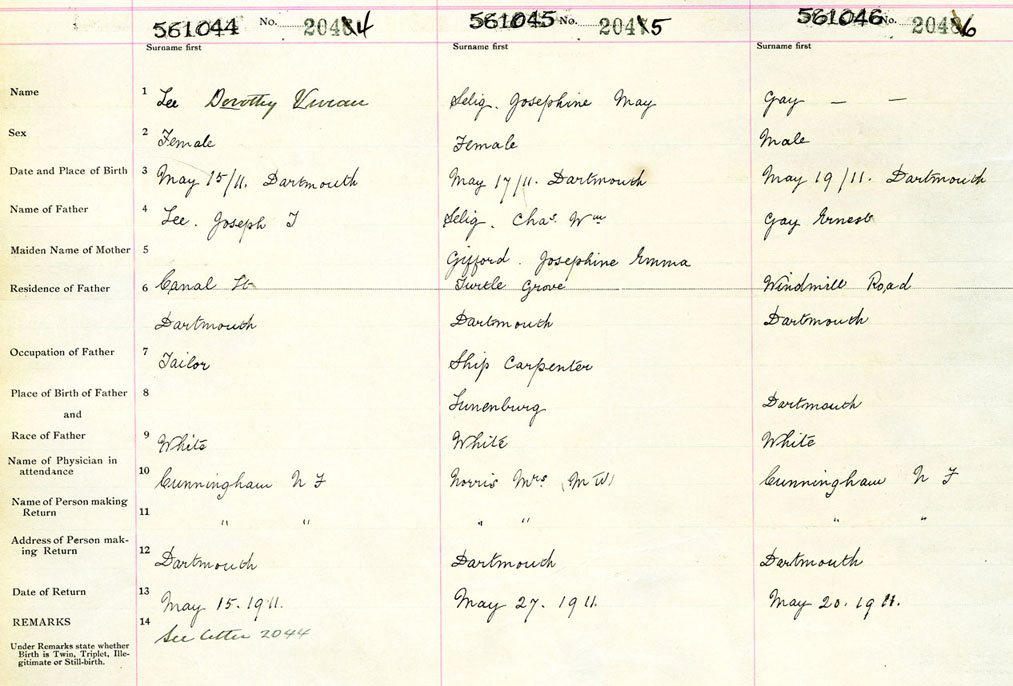 561044 No. 20484 561045 No. 20475 561046 No. 20486
Surname first Surname first Surname first
Name 1 Lee Dorothy Vivian Selig. Josephine May Gay — —
Sex 2 Female Female Male
Date and Place of Birth 3 May 15/11. Dartmouth May 17/11. Dartmouth May 19/11. Dartmouth
Name of Father 4 Lee. Joseph T Selig. Chas. Wm Gay Ernest
Maiden Name of Mother 5 Gifford. Josephine Emma
Residence of Father 6 Canal St Turtle Grove Windmill Road
Dartmouth Dartmouth Dartmouth
Occupation of Father 7 Tailor Ship Carpenter
Place of Birth of Father 8 Lunenburg Dartmouth
and
Race of Father 9 White White White
Name of Physician in
attendance 10 Cunningham N F Norris Mrs (M W) Cunningham N F
Name of Person making
Return 11 " " " " " "
Address of Person mak-
ing Return 12 Dartmouth Dartmouth Dartmouth
Date of Return 13 May 15. 1911. May 27. 1911. May 20. 1911.
REMARKS 14 See letter 2044
Under Remarks state whether
Birth is Twin, Triplet, Ille-
gitimate or Still-birth.